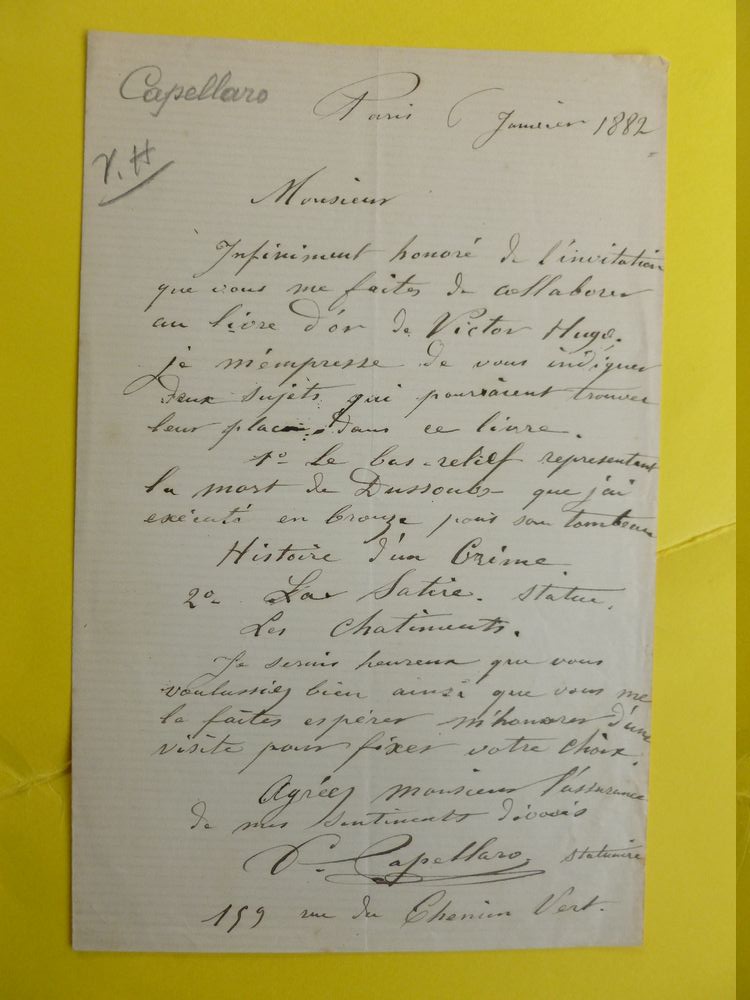 Capellaro
Paris 6 Janvier 1882
V. H
Monsieur
Infiniment honoré de l'invitation
que vous me faites de collaborer
au livre d'or de Victor Hugo.
je m'empresse de vous indiquer
deux sujets qui pourraient trouver
leur place dans ce livre.
1º Le bas-relief representant
la mort de Dussoubs que j'ai
exécuté en bronze pour son tombeau
Histoire d'un Crime
2º La Satire. Statue.
Les Chatiments.
Je serais heureux que vous
voulussiez bien ainsi que vous me
le faites espérer m'honorer d'une
visite pour fixer votre choix.
Agréez monsieur l'assurance
de mes sentiments dévoués
Capellaro, statuaire
159 rue du Chemin Vert.